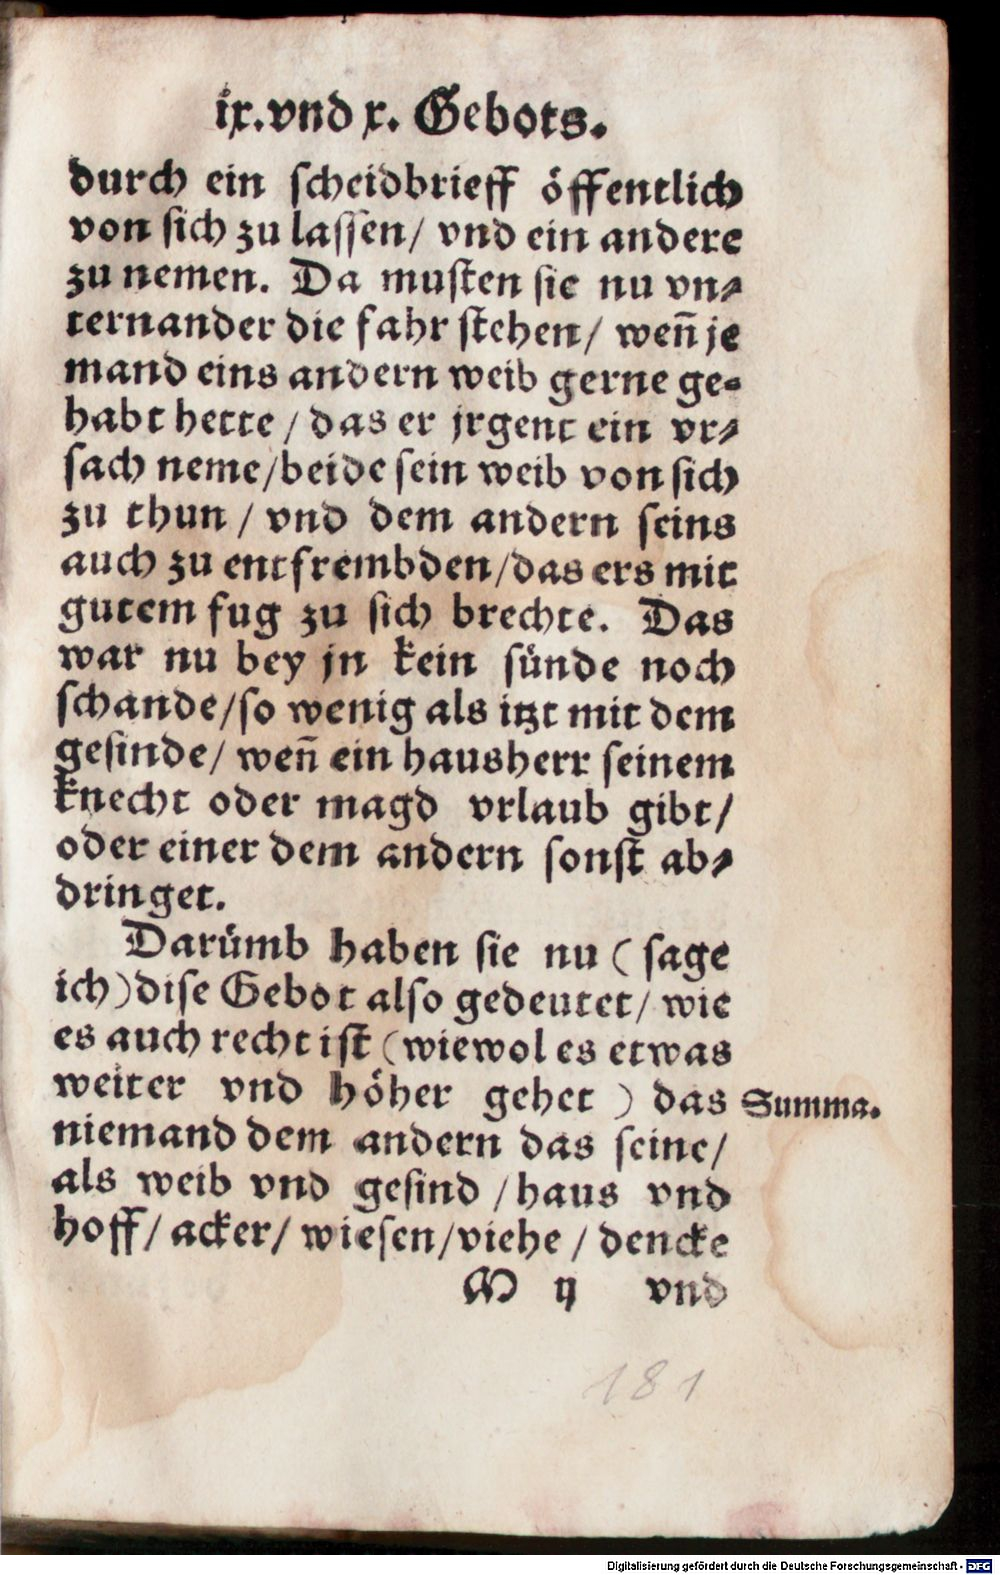 ix. vnd x. Gebots.
durch ein scheidbrieff öffentlich
von sich zu lassen/ vnd ein andere
zu nemen. Da musten sie nu vn⸗
ternander die fahr stehen/ weñ je
mand eins andern weib gerne ge⸗
habt hette / das er jrgent ein vr⸗
sach neme/beide sein weib von sich
zu thun / vnd dem andern seins
auch zu entfrembden/das ers mit
gutem fug zu sich brechte. Das
war nu bey jn kein sünde noch
schande/so wenig als itzt mit dem
gesinde/ weñ ein hausherr seinem
knecht oder magd vrlaub gibt/
oder einer dem andern sonst ab⸗
dringet.
Darümb haben sie nu ( sage
ich) dise Gebot also gedeutet/ wie
es auch recht ist (wiewol es etwas
weiter vnd höher gehet ) das Summa.
niemand dem andern das seine/
als weib vnd gesind / haus vnd
hoff/ acker/ wiesen/viehe / dencke
M ij vnd
181
Digitalisierung gefördert durch die Deutsche Forschungsgemeinschaft - DFG